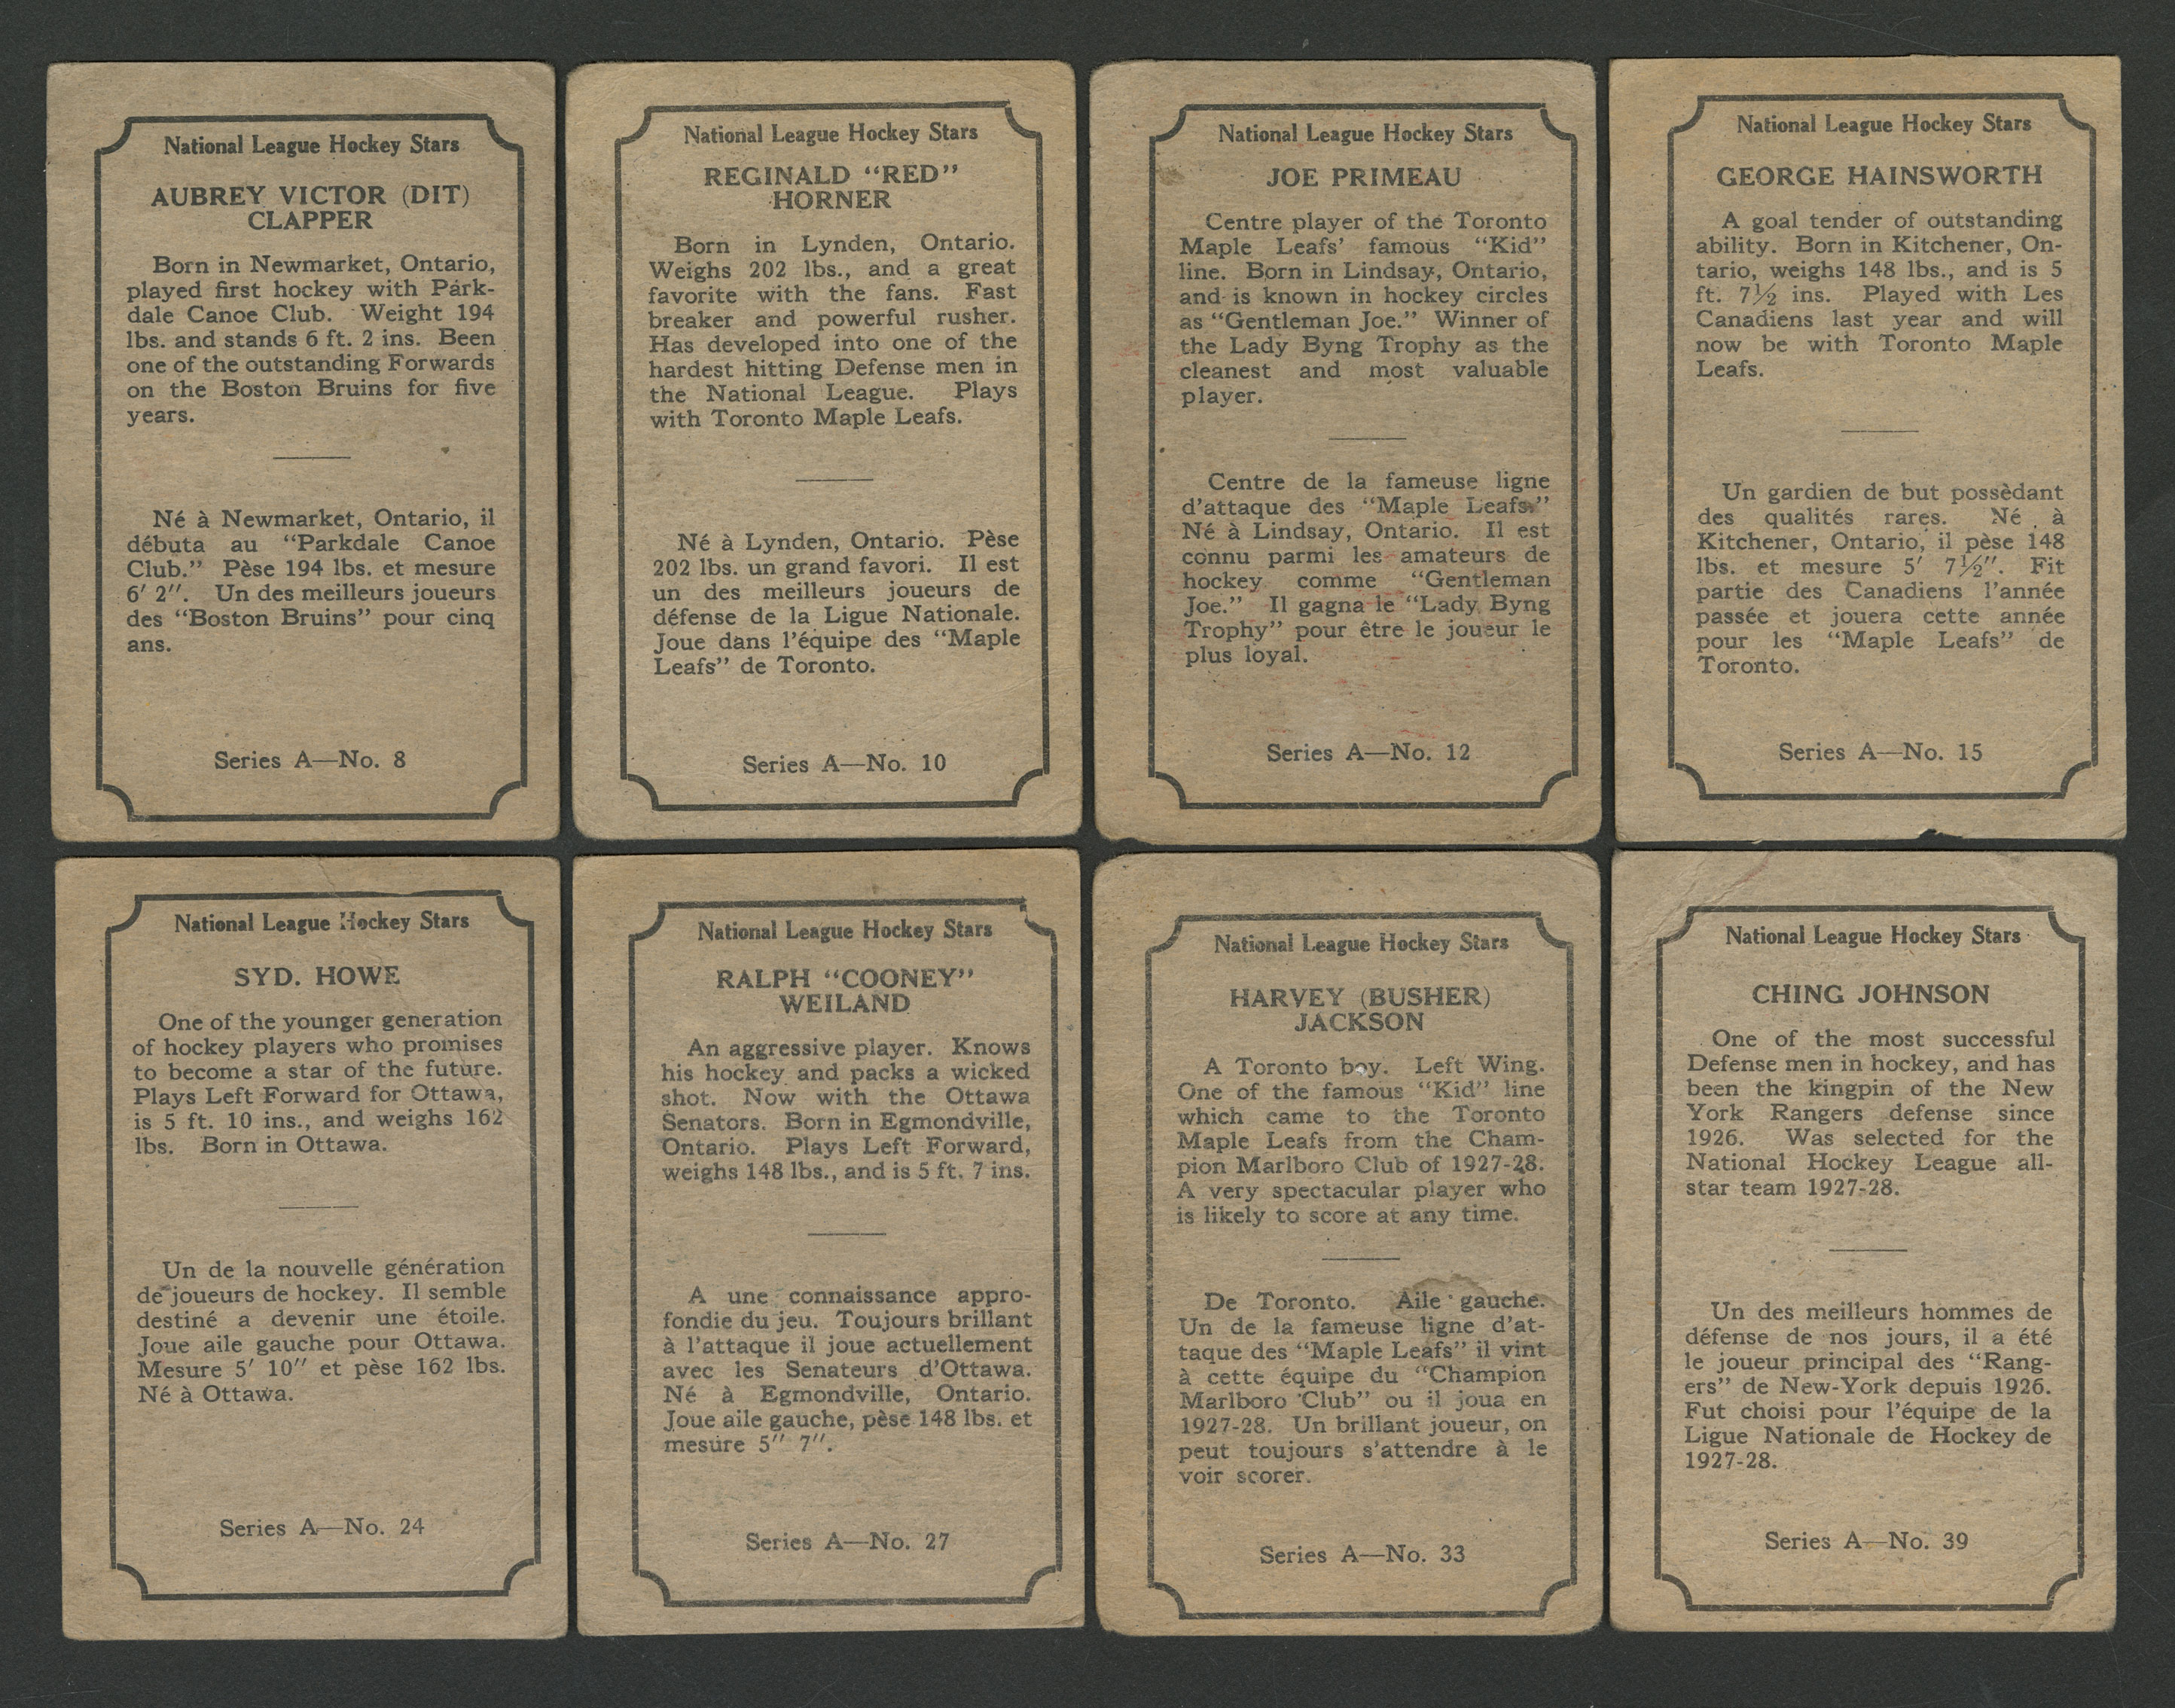 National League Hockey Stars
AUBREY VICTOR (DIT)
CLAPPER
Born in Newmarket, Ontario,
played first hockey with Park-
dale Canoe Club. Weight 194
lbs. and stands 6 ft. 2 ins. Been
one of the outstanding Forwards
on the Boston Bruins for five
years.
Né à Newmarket, Ontario, il
débuta au "Parkdale Canoe
Club." Pèse 194 lbs. et mesure
6' 2". Un des meilleurs joueurs
des "Boston Bruins" pour cinq
ans.
Series A—No. 8
National League Hockey Stars
REGINALD "RED"
HORNER
Born in Lynden, Ontario.
Weighs 202 lbs., and a great
favorite with the fans. Fast
breaker and powerful rusher.
Has developed into one of the
hardest hitting Defense men in
the National League. Plays
with Toronto Maple Leafs.
Né à Lynden, Ontario. Pèse
202 lbs. un grand favori. Il est
un des meilleurs joueurs de
défense de la Ligue Nationale.
Joue dans l'équipe des "Maple
Leafs" de Toronto.
Series A—No. 10
National League Hockey Stars
JOE PRIMEAU
Centre player of the Toronto
Maple Leafs' famous "Kid"
line. Born in Lindsay, Ontario,
and is known in hockey circles
as "Gentleman Joe." Winner of
the Lady Byng Trophy as the
cleanest and most valuable
player.
Centre de la fameuse ligne
d'attaque des "Maple Leafs."
Né à Lindsay, Ontario. Il est
connu parmi les amateurs de
hockey comme "Gentleman
Joe." Il gagna le "Lady Byng
Trophy" pour être le joueur le
plus loyal.
Series A—No. 12
National League Hockey Stars
GEORGE HAINSWORTH
A goal tender of outstanding
ability. Born in Kitchener, On-
tario, weighs 148 lbs., and is 5
ft. 7½ ins. Played with Les
Canadiens last year and will
now be with Toronto Maple
Leafs.
Un gardien de but possèdant
des qualités rares. Né à
Kitchener, Ontario, il pèse 148
lbs. et mesure 5' 7½". Fit
partie des Canadiens l'année
passée et jouera cette année
pour les "Maple Leafs" de
Toronto.
Series A—No. 15
National League Hockey Stars
SYD. HOWE
One of the younger generation
of hockey players who promises
to become a star of the future.
Plays Left Forward for Ottawa,
is 5 ft. 10 ins., and weighs 162
lbs. Born in Ottawa.
Un de la nouvelle génération
de joueurs de hockey. Il semble
destiné a devenir une étoile.
Joue aile gauche pour Ottawa.
Mesure 5' 10" et pèse 162 lbs.
Né à Ottawa.
Series A—No. 24
National League Hockey Stars
RALPH "COONEY"
WEILAND
An aggressive player. Knows
his hockey and packs a wicked
shot. Now with the Ottawa
Senators. Born in Egmondville,
Ontario. Plays Left Forward,
weighs 148 lbs., and is 5 ft. 7 ins.
A une connaissance appro-
fondie du jeu. Toujours brillant
à l'attaque il joue actuellement
avec les Senateurs d'Ottawa.
Né à Egmondville, Ontario.
Joue aile gauche, pèse 148 lbs. et
mesure 5" 7".
Series A—No. 27
National League Hockey Stars
HARVEY (BUSHER)
JACKSON
A Toronto boy. Left Wing.
One of the famous "Kid" line
which came to the Toronto
Maple Leafs from the Cham-
pion Marlboro Club of 1927-28.
A very spectacular player who
is likely to score at any time.
De Toronto. Aile gauche.
Un de la fameuse ligne d'at-
taque des "Maple Leafs" il vint
à cette équipe du "Champion
Marlboro Club" ou il joua en
1927-28. Un brillant joueur, on
peut toujours s'attendre à le
voir scorer.
Series A—No. 33
National League Hockey Stars
CHING JOHNSON
One of the most successful
Defense men in hockey, and has
been the kingpin of the New
York Rangers defense since
1926. Was selected for the
National Hockey League all-
star team 1927-28.
Un des meilleurs hommes de
défense de nos jours, il a été
le joueur principal des "Rang-
ers" de New-York depuis 1926.
Fut choisi pour l'équipe de la
Ligue Nationale de Hockey de
1927-28.
Series A—No. 39